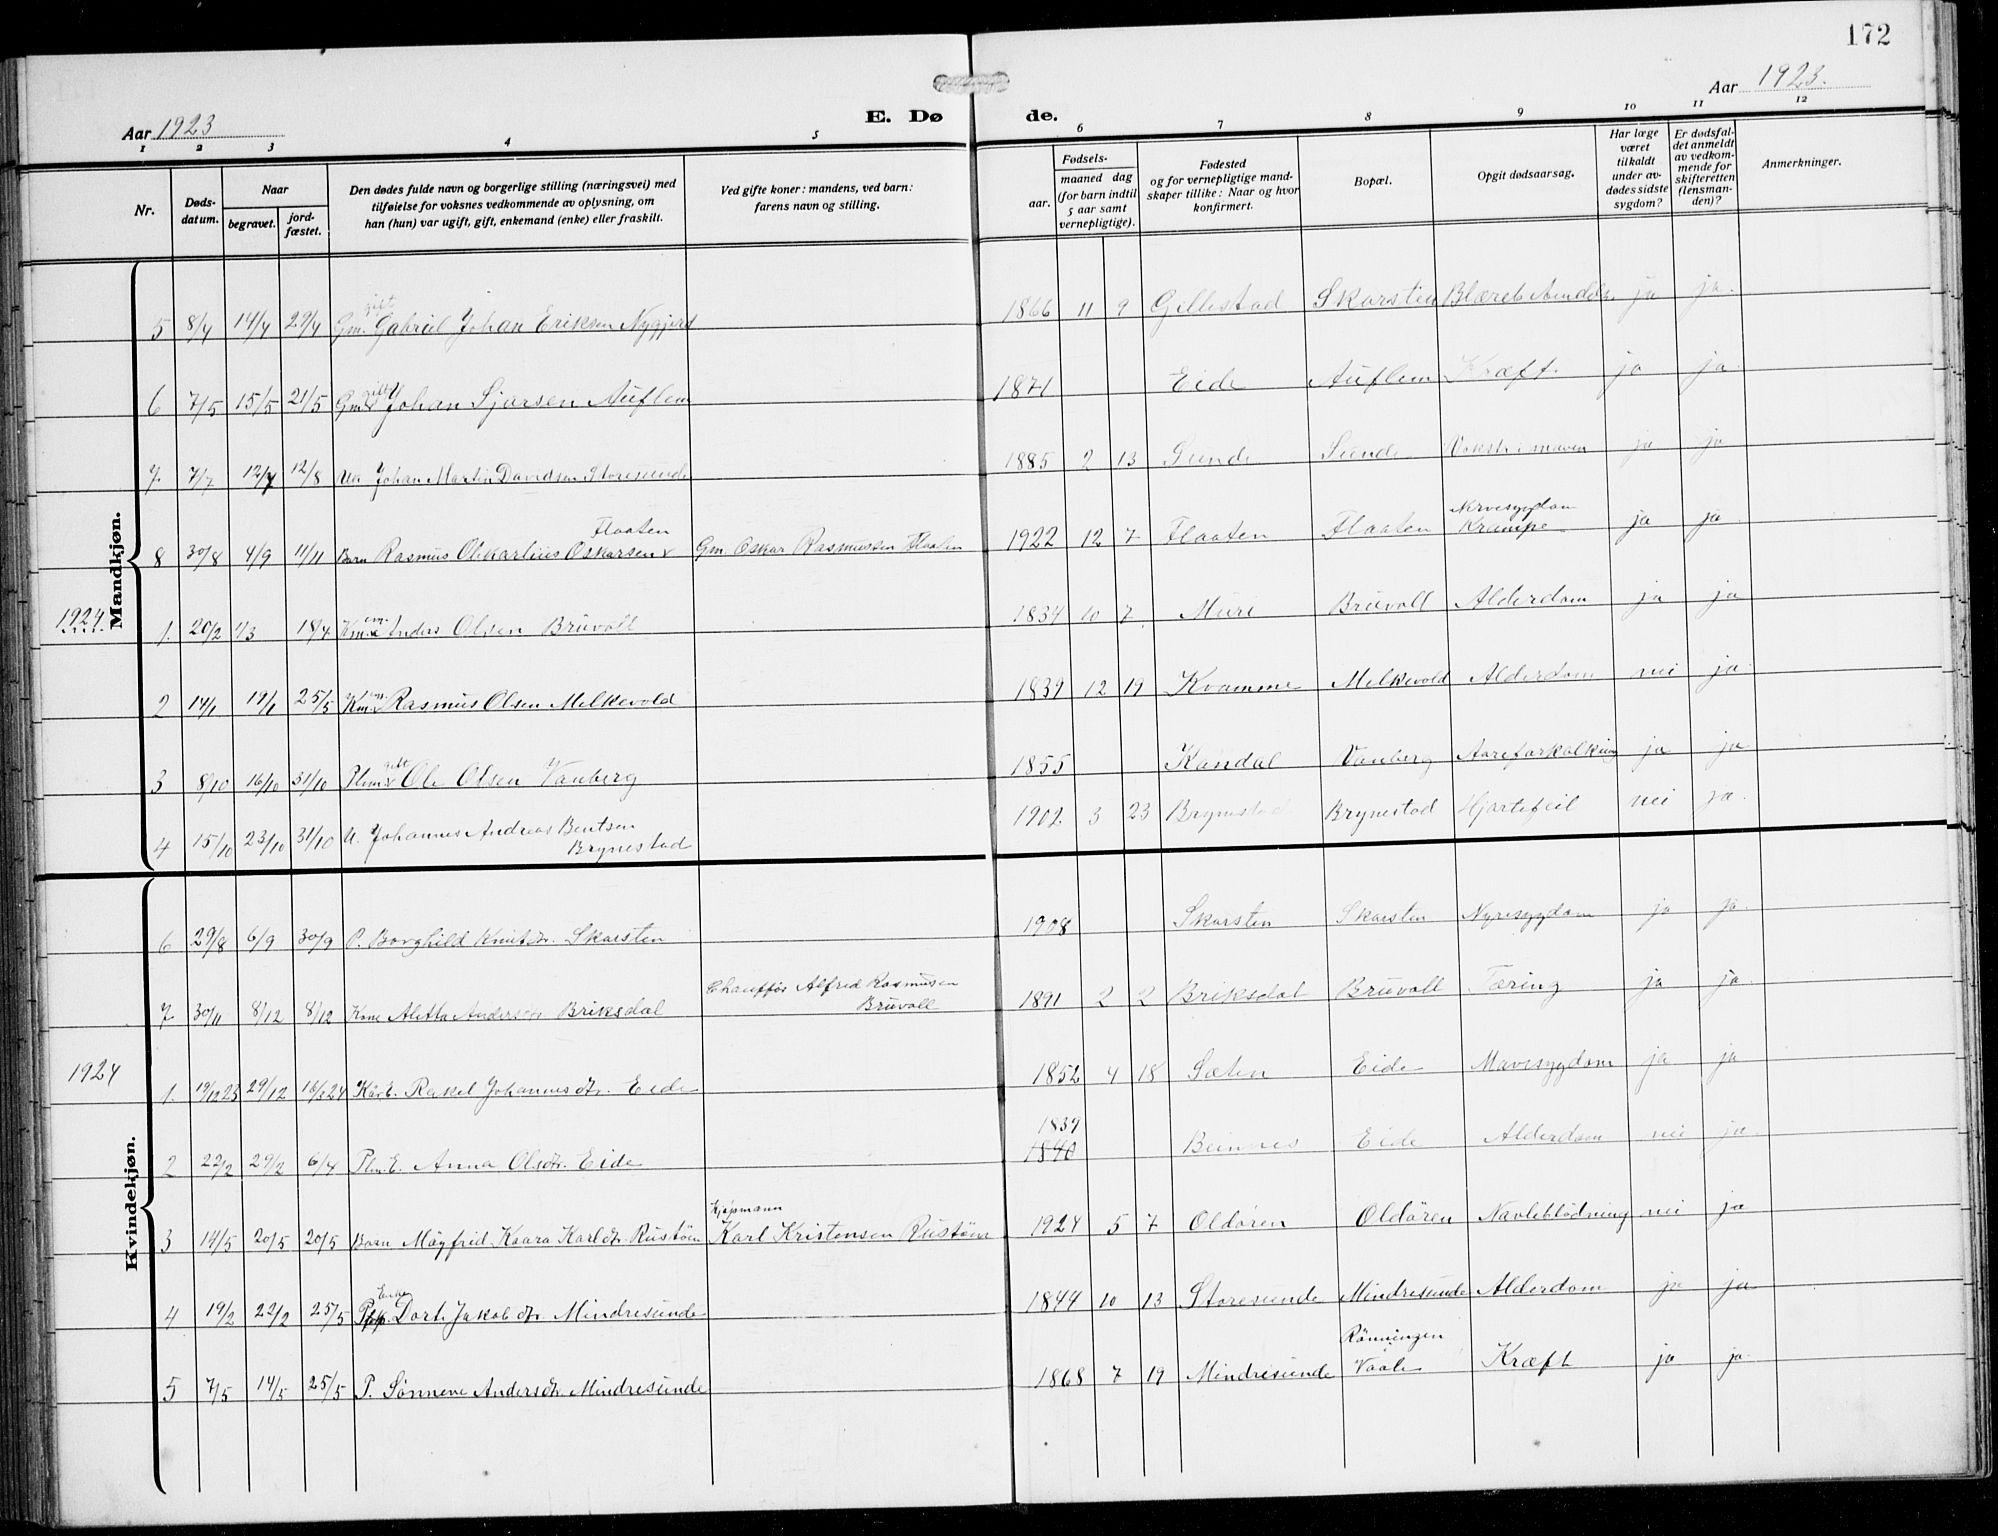 172
Aar 1923
E. Døde.
Aar 1923.
1 2 3 4 5 6 7 8 9 10 11 12
Nr.
Døds-datum.
Naar
begravet.
jord-fæstet.
Den dødes fulde navn og borgerlige stilling (næringsvei) med
tilføielse for voksnes vedkommende av oplysning, om
han (hun) var ugift, gift, enkemand (enke) eller fraskilt.
Ved gifte koner: mandens, ved barn:
farens navn og stilling.
Fødsels-
aar.
maaned dag
(for barn indtil
5 aar samt
vernepligtige).
Fødested
og for vernepligtige mand-
skaper tillike: Naar og hvor
konfirmert.
Bopæl.
Opgit dødsaarsag.
Har læge
været
tilkaldt
under av-
dødes sidste
sygdom?
Er dødsfal-
det anmeldt
av vedkom-
mende for
skifteretten
(lensman-
den)?
Anmerkninger.
Mandkjøn.
gift
5 8/4 14/4 29/4 Gm. Gabriel Johan Eriksen Nygjerd 1866 11 9 Gillestad Skarsten ja ja.
gift
6 7/5 15/5 21/5 Gm. Johan Sjursen Auflem 1871 Eide Auflem Kræft. ja ja.
7. 7/7 12/7 12/8 Johan Martin Davidsen Storesunde 1885 2 13 Sunde Sunde Vekst i maven ja ja
Flaaten Nervesygdom
8 30/8 4/9 11/11 Barn Rasmus Olekarlius Oskarsen Gm. Oskar Rasmussen Flaaten 1922 12 7 Flaaten Flaaten Krampe ja ja.
1924
em.
1. 20/2 1/3 18/4 Km. Anders Olsen Bruvoll 1834 10 7. Muri Bruvoll Alderdom ja ja
em.
2 14/1 19/1 25/5 Km. Rasmus Olsen Melkevold 1839 12 19 Kvamme Melkevold Alderdom nei ja.
gift
3 8/10 16/10 31/10 Plm. Ole Olsen Vanberg 1855 Kandal Vanberg Aareforkalkning ja ja
4 15/10 23/10 31/10 U. Johannes Andreas Bentsen Brynestad 1902 3 23 Brynestad Brynestad Hjertefeil nei ja.
Kvindekjøn.
6 29/8 6/9 30/9 P. Borghild Knutdtr. Skarsten 1908 Skarsten Skarsten Nyresygdom ja ja.
7. 30/11 8/12 8/12 Kone Aletta Andersdtr Briksdal Chauffør Alfred Rasmusen Bruvoll 1891 2 2 Briksdal Bruvoll Tæring ja ja.
1924
1. 19/12 23 29/12 16/2 24 Rakel Johannesdtr. Eide 1852 4 18 Sæten Eide Mavesygdom ja ja
1839
2 22/2 29/2 6/4 Plm.E. Anna Olsdtr. Eide 1840 Beinnes Eide Alderdom nei ja.
Kjøpmann
3 14/5 20/5 20/5 Barn Magfrid Kaara Karldtr. Rustøen Karl Kristensen Rustøen 1924 5 7 Oldøren Oldøren Navleblødning nei ja
Enke
4 19/2 22/2 25/5 Dorte Jakobdtr Mindresunde 1844 10 13 Storesunde Mindresunde Alderdom ja ja
Rønningen
5 7/5 14/5 25/5 P. Sønneve Andersdtr. Mindresunde 1868 7 19 Mindresunde Vaale Kræft ja ja.